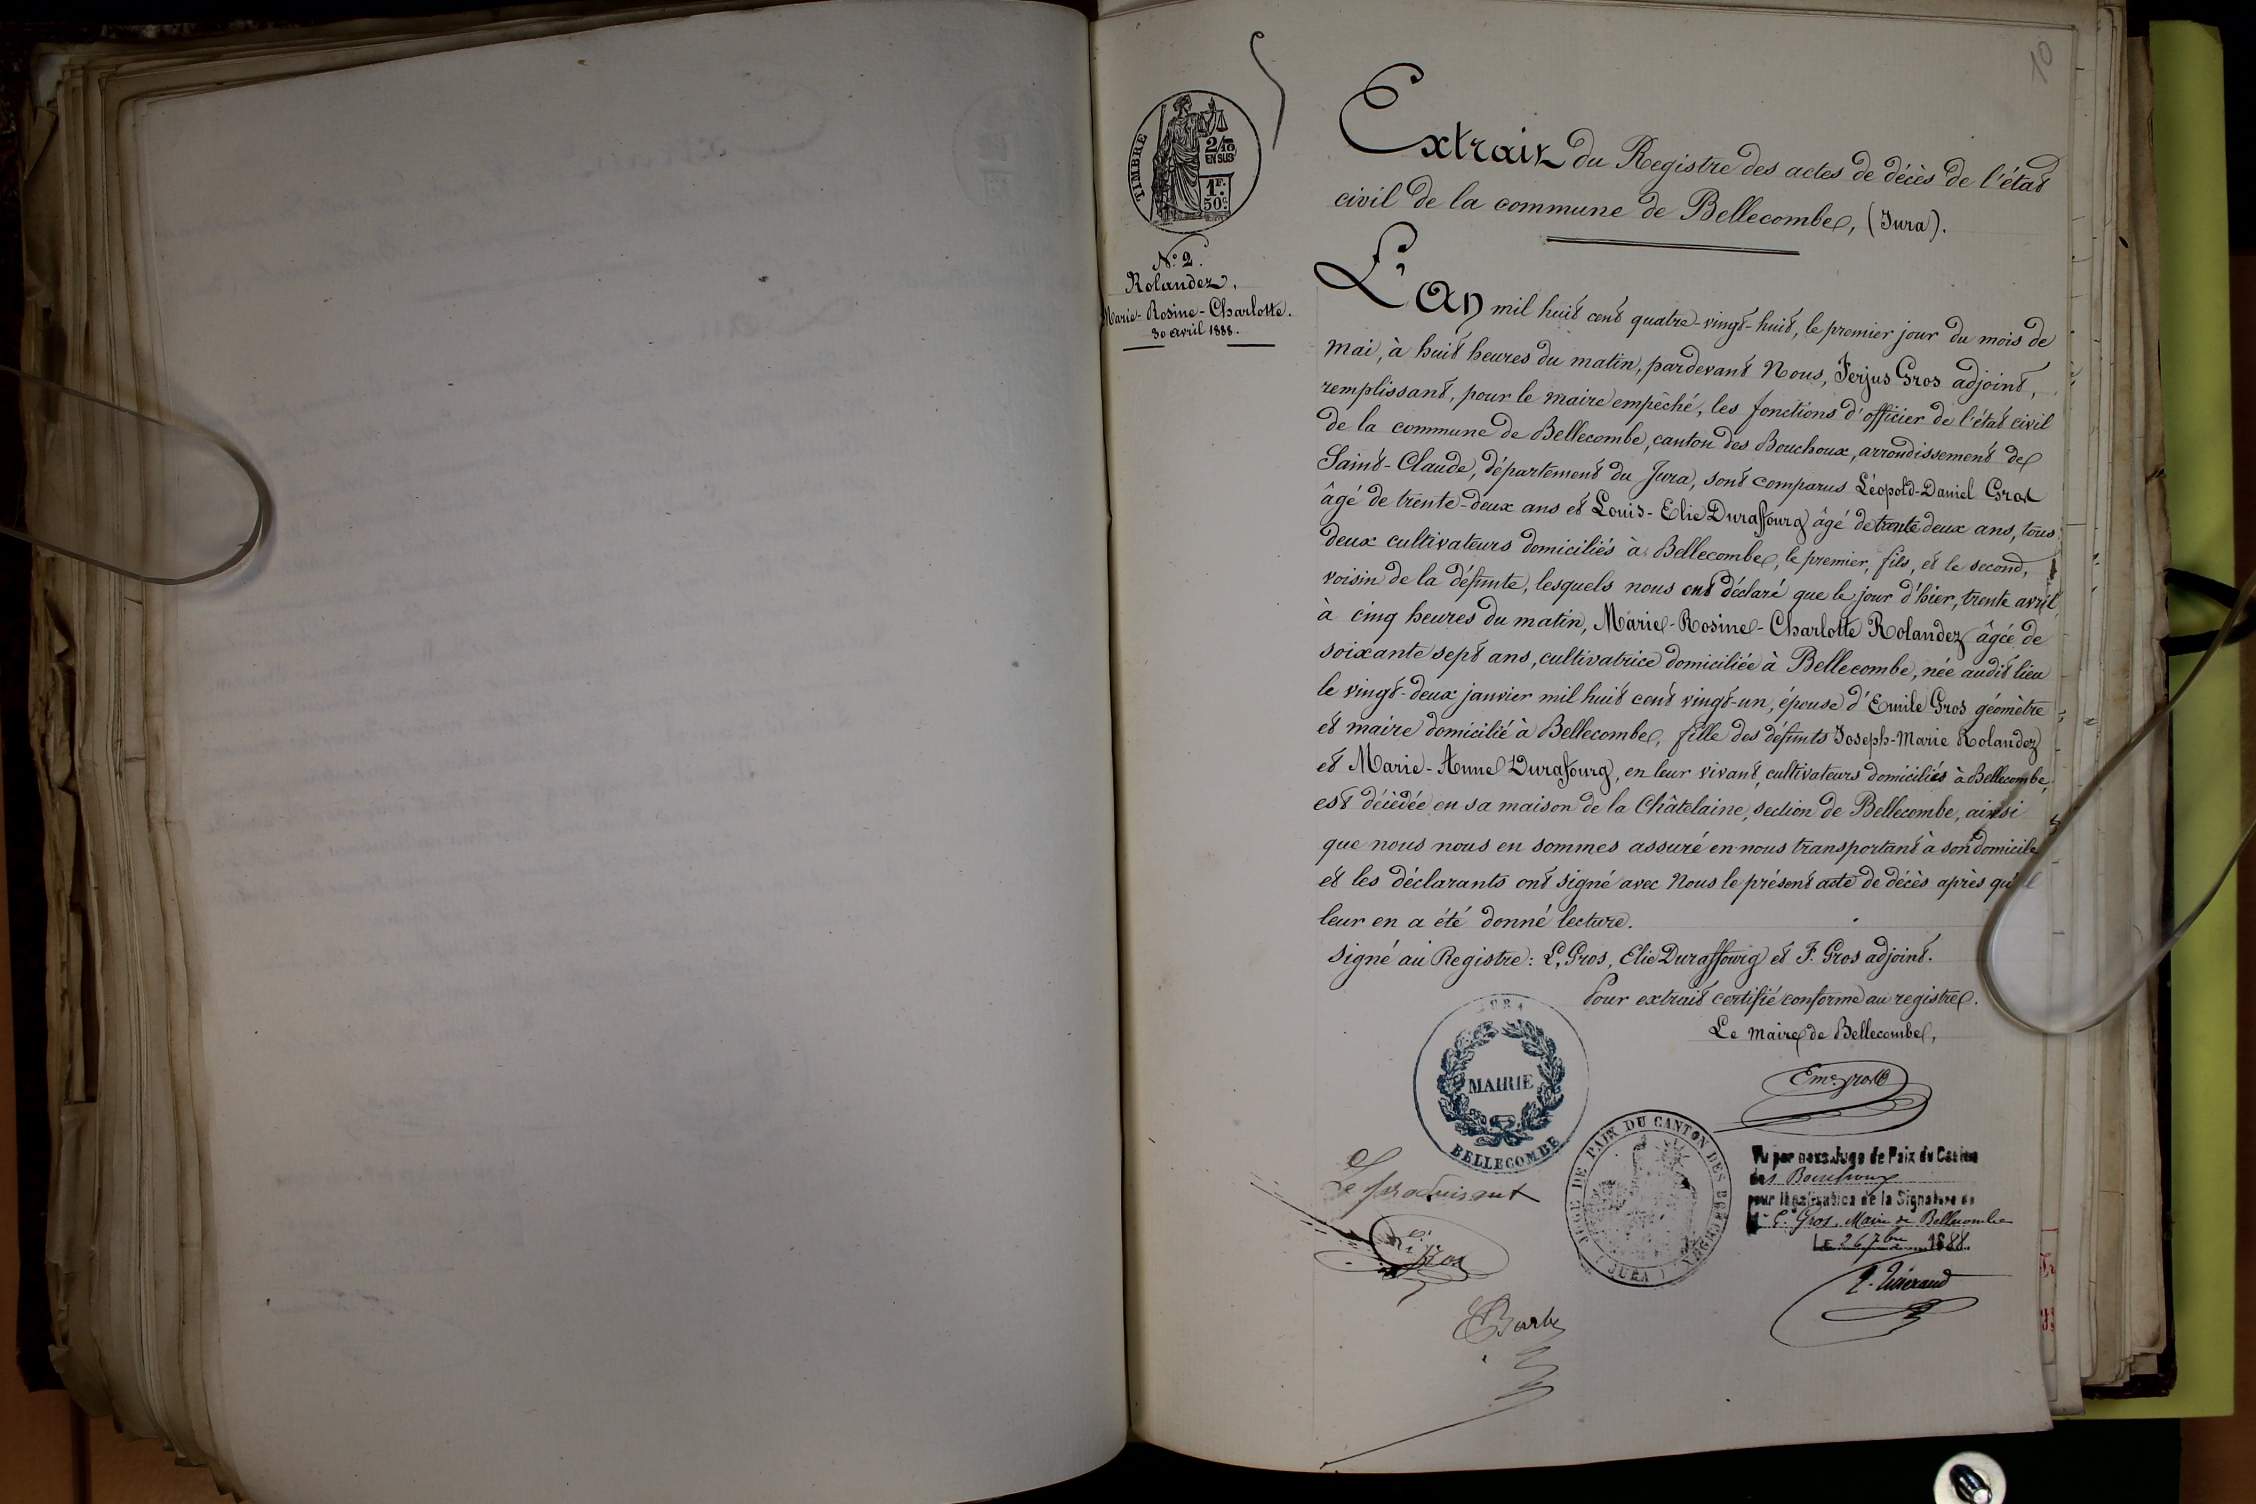 10
TIMBRE
2/10
EN SUS
1F.
50c.
Extrait du Registre des actes de décès de l'état
civil de la commune de Bellecombe, (Jura).
N.º 2.
Rolandez,
Marie-Rosine-Charlotte.
30 avril 1888.
L'an mil huit cent quatre-vingt-huit, le premier jour du mois de
mai, à huit heures du matin, pardevant Nous, Ferjus Gros adjoint,
remplissant, pour le maire empêché, les fonctions d'officier de l'état civil
de la commune de Bellecombe, canton des Bouchoux, arrondissement de
Saint-Claude, département du Jura, sont comparus Léopold-Daniel Gros
âgé de trente-deux ans et Louis-Elie Duraffourg âgé de trente deux ans, tous
deux cultivateurs domiciliés à Bellecombe, le premier, fils, et le second,
voisin de la défunte, lesquels nous ont déclaré que le jour d'hier, trente avril
à cinq heures du matin, Marie-Rosine-Charlotte Rolandez âgée de
soixante sept ans, cultivatrice domiciliée à Bellecombe, née audit lieu
le vingt-deux janvier mil huit cent vingt-un, épouse d'Emile Gros géomètre
et maire domicilié à Bellecombe, fille des défunts Joseph-Marie Rolandez
et Marie-Anne Duraffourg, en leur vivant, cultivateurs domiciliés à Bellecombe,
est décédée en sa maison de la Châtelaine, section de Bellecombe, ainsi
que nous nous en sommes assuré en nous transportant à son domicile
et les déclarants ont signé avec Nous le présent acte de décès après qu'il
leur en a été donné lecture.
Signé au Registre: L. Gros, Elie Duraffourg et F. Gros adjoint.
Pour extrait certifié conforme au registre.
Le maire de Bellecombe,
Eme Gros
JURA
MAIRIE
BELLECOMBE
JUGE DE PAIX DU CANTON DES BOUCHOUX
(JURA)
Vu par nous Juge de Paix du Canton
des Bouchoux
pour légalisation de la Signature de
Mr E. Gros, Maire de Bellecombe
LE 26 7bre 1888.
Le produisant
Gros
Barbe